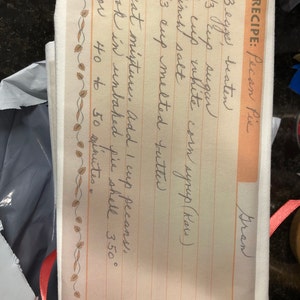 RECIPE: Pecan Pie Gran
3 eggs beaten
2/3 cup sugar
1 cup white corn syrup (Karo)
pinch salt
1/3 cup melted butter
mixture. Add 1 cup pecans.
in unbaked pie shell 350°
40 to 50 minutes.